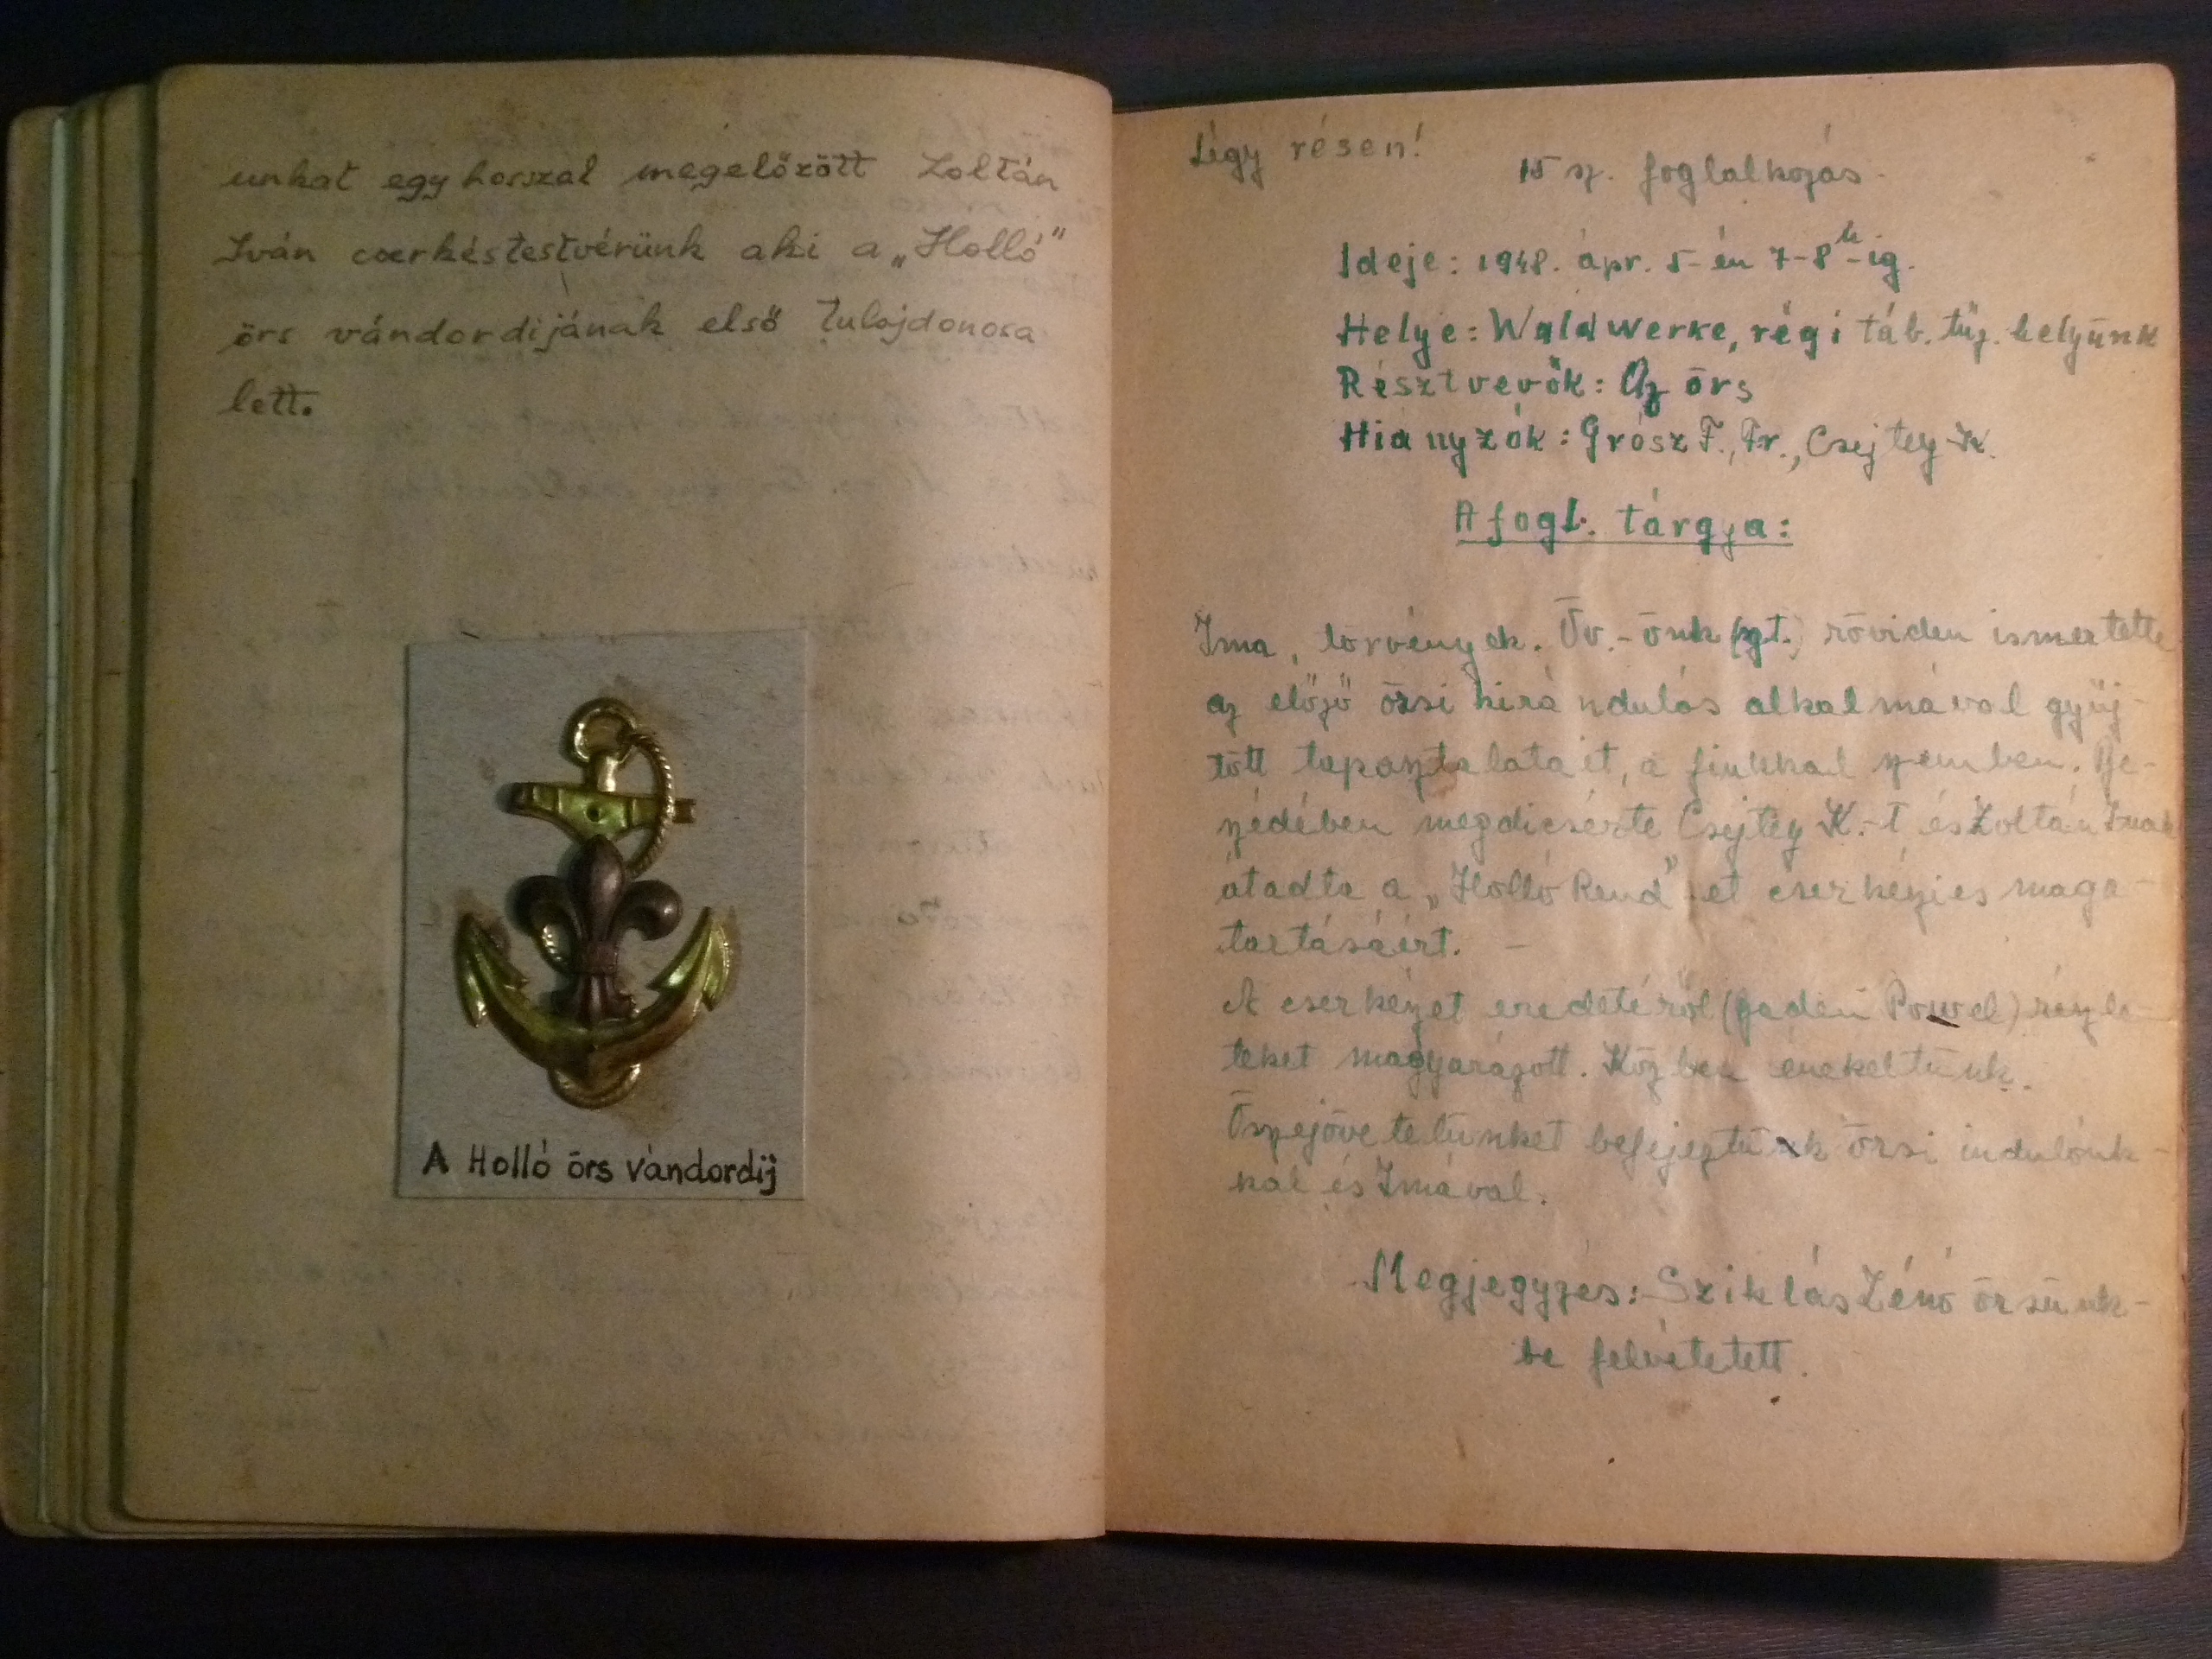 unkat egy hosszal megelőzött Zoltán
Iván cserkéstestvérünk aki a „Holló"
örs vándordijának első tulajdonosa
lett.
A Holló örs vándordíj
Légy résen!
15 sz. foglalkozás.
Ideje: 1948. ápr. 5-én 7-8h-ig.
Helye: Waldwerke, régi táb. tűz. helyünk
Résztvevők: Az örs
Hiányzók: Grósz F., Fr., Csejtey K.
A fogl. tárgya:
Ima, törvények. Öv.-önk röviden ismertette
az előző őrsi kirándulás alkalmával gyűj-
tött tapasztalatait, a fiukkal szemben. Be-
szédében megdicsérte Csejtey K.-t és Zoltán
átadta a „Holló Rend"-et cserkészies maga-
tartásáért. -
A cserkészet eredetéről (Baden Powel) részle-
teket magyarázott. Közben énekeltünk.
Öszejövetelünket befejeztük őrsi indulónk-
kal és Imával.
Megjegyzés: Sziklás Zénó örsünk-
be felvétetett.